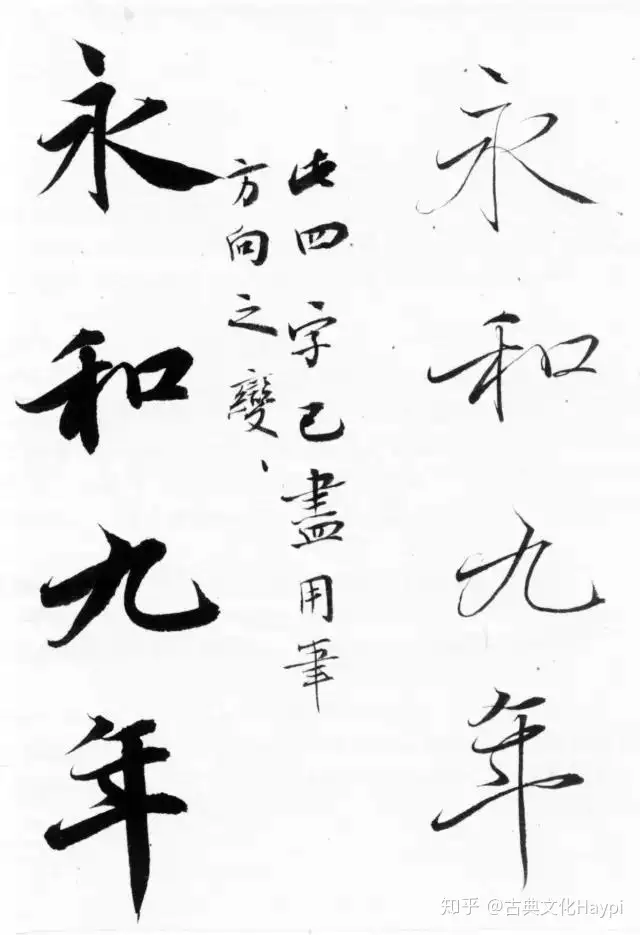 永和九年
此四字已盡用筆
方向之變、
永和九年
知乎 @古典文化Haypi